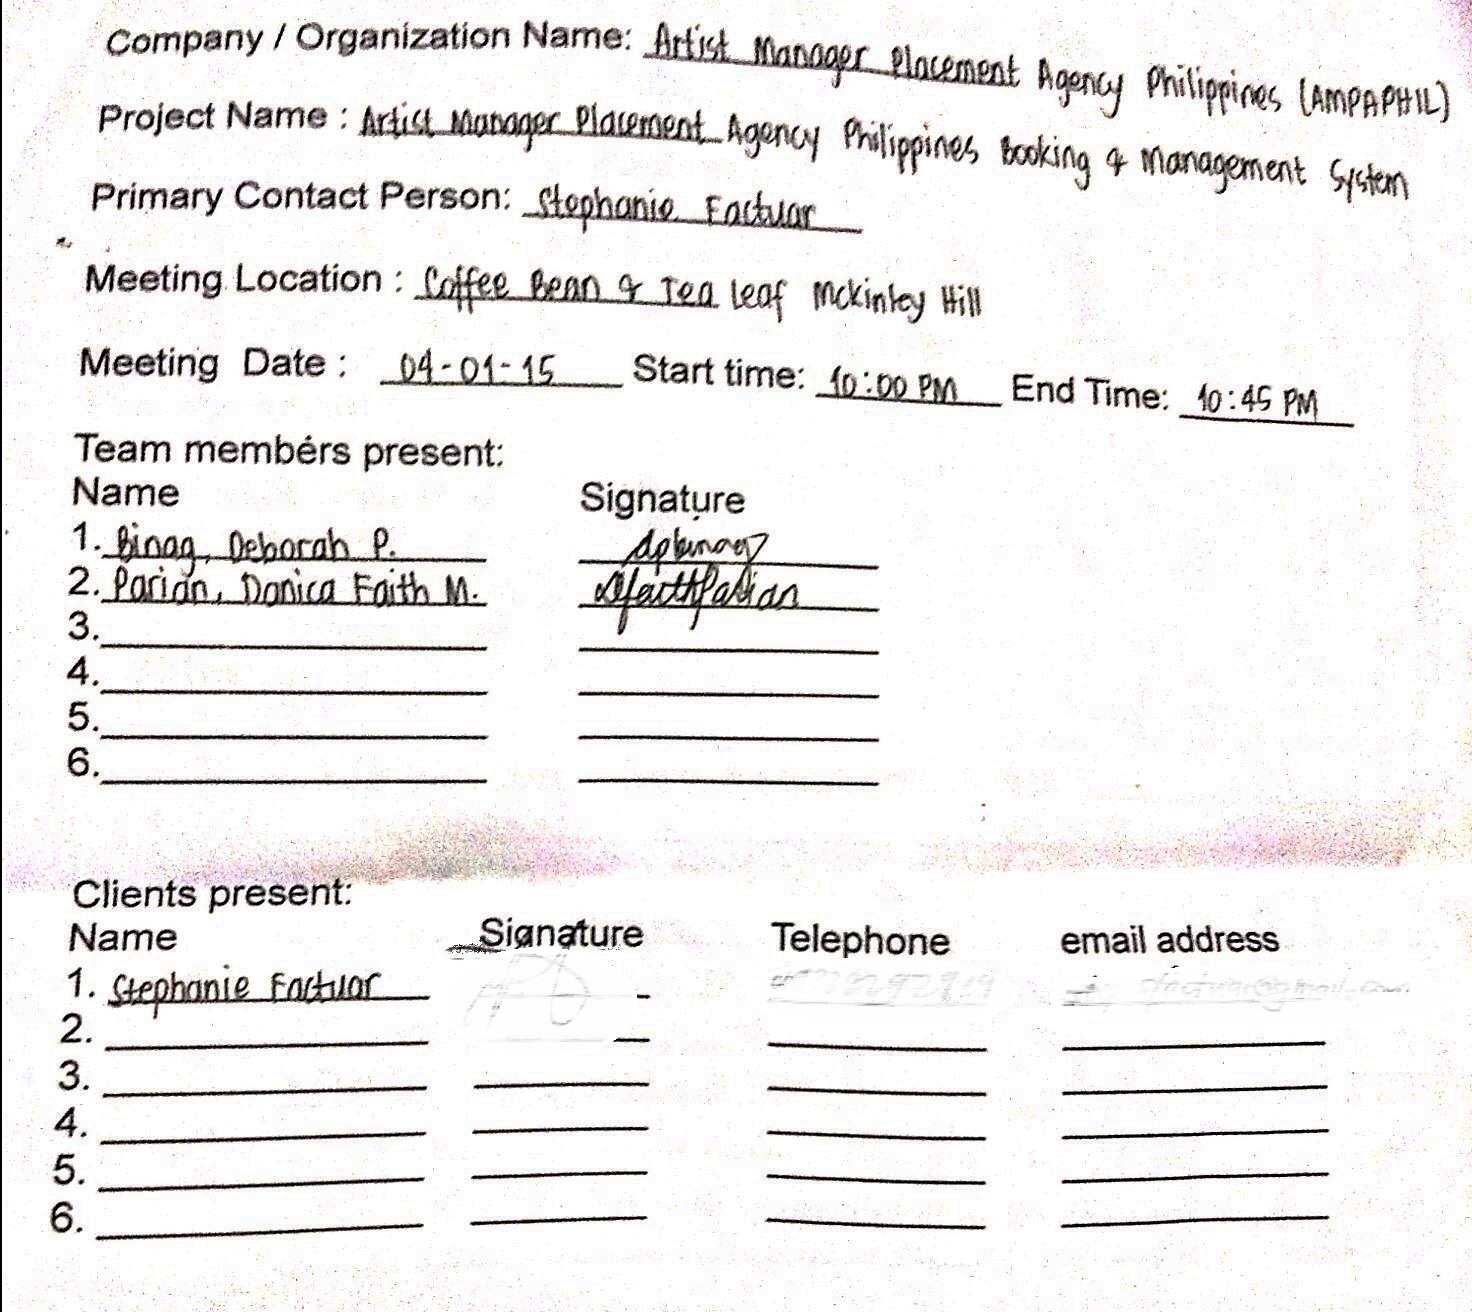 Company / Organization Name: Artist Manager Placement Agency Philippines (AMPAPHIL)
Project Name : Artist Manager Placement Agency Philippines Booking & Management System
Primary Contact Person: Stephanie Factuar
Meeting Location : Coffee Bean & Tea Leaf Mckinley Hill
Meeting Date : 04-01-15 Start time: 10:00 PM End Time: 10:45 PM
Team members present:
Name Signature
1. Binag, Deborah P.
2. Parian, Danica Faith M.
3.
4.
5.
6.
Clients present:
Name Signature Telephone email address
1. Stephanie Factuar
2.
3.
4.
5.
6.